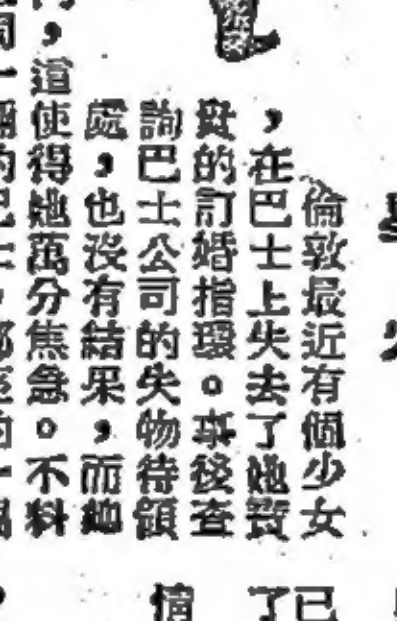 倫敦最近有個少女
，在巴士上失去了她寶
貴的訂婚指環。事後查
詢巴士公司的失物待領
處，也沒有結果，而她
，這使得她萬分焦急。不料